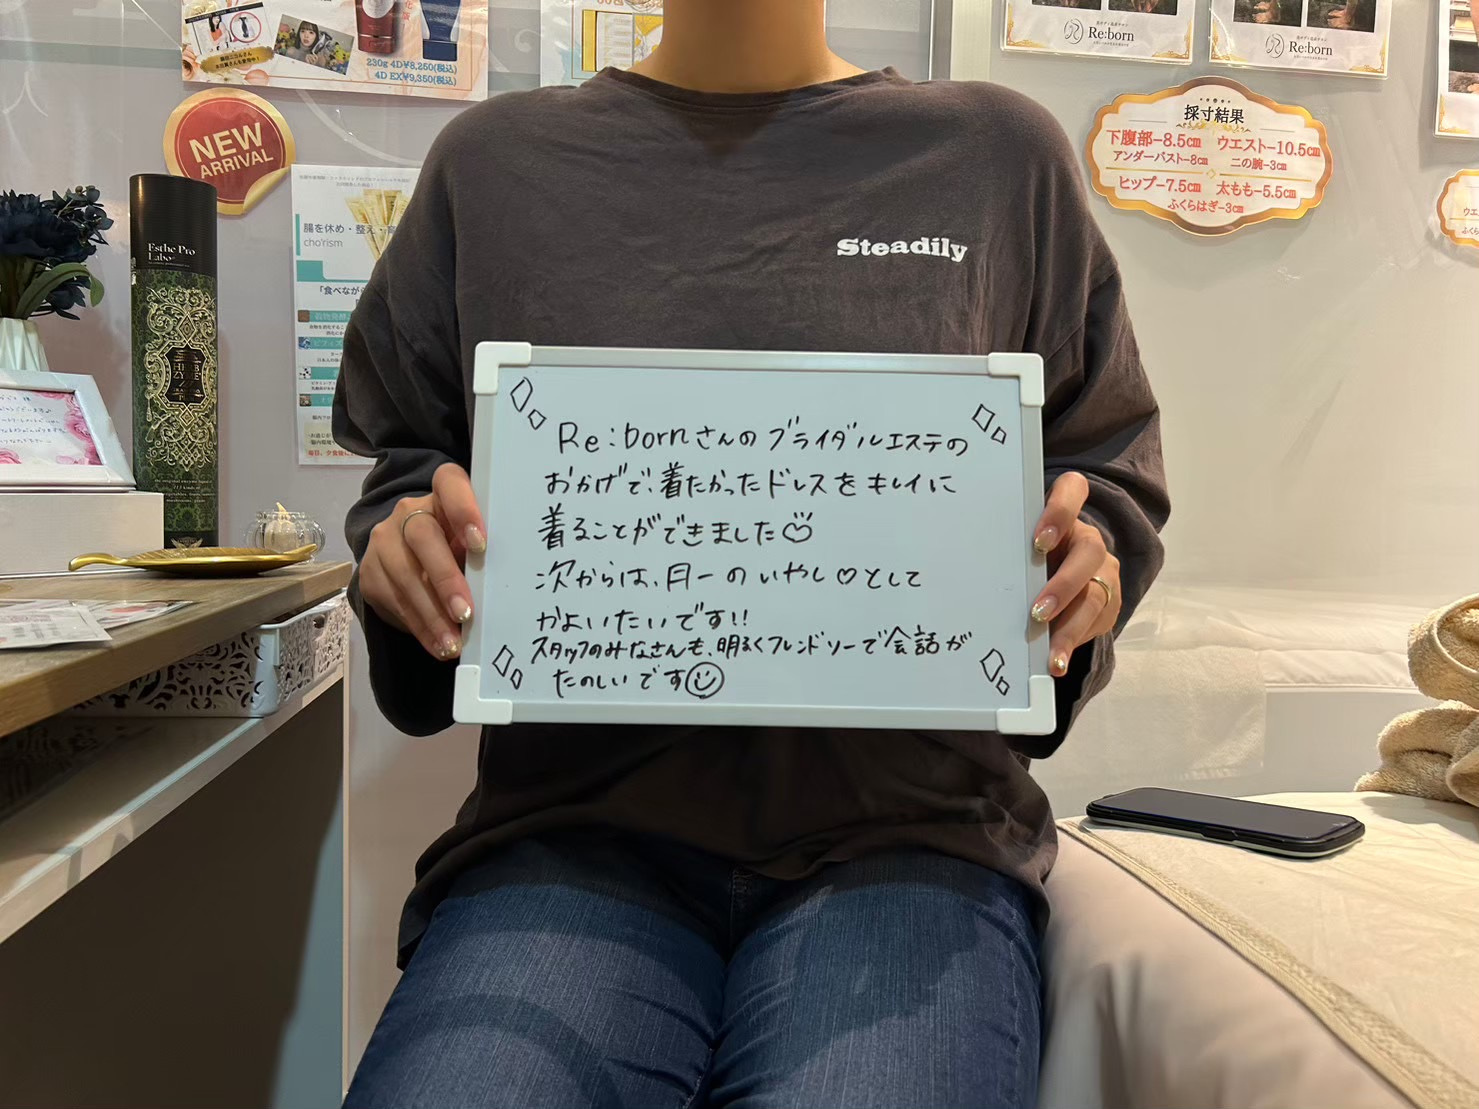 230g 4D¥8,250(税込)
4D EX¥9,350(税込)
NEW
ARRIVAL
Esthe Pro
Labo
腸を休め・整え・
cho'rism
Re:born
Re:born
採寸結果
下腹部-8.5cm ウエスト-10.5cm
アンダーバスト-8cm 二の腕-3cm
ヒップ-7.5cm 太もも-5.5cm
ふくらはぎ-3cm
Steadily
Re:bornさんのブライダルエステの
おかげで、着たかったドレスをキレイに
着ることができました♡
次からは、月一のいやし♡として
かよいたいです!!
スタッフのみなさんも、明るくフレンドリーで会話が
たのしいです☺